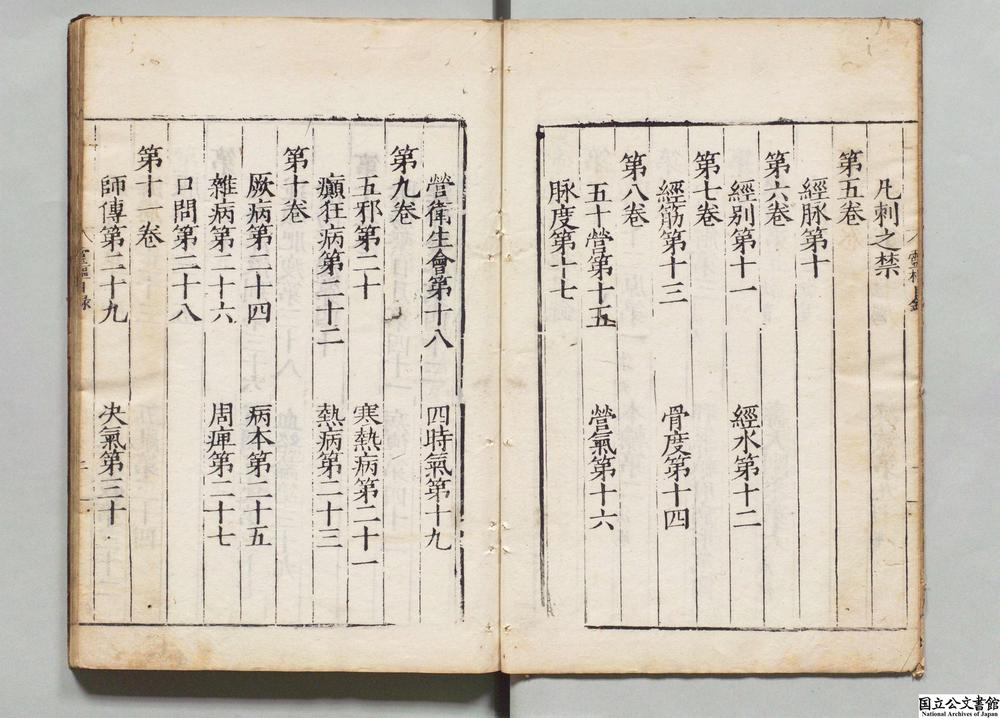 凡刺之禁
第五卷
經脉第十
第六卷
經別第十一　經水第十二
第七卷
經筋第十三　骨度第十四
第八卷
五十營第十五　營氣第十六
脉度第十七
營衛生會第十八　四時氣第十九
第九卷
五邪第二十　寒熱病第二十一
癲狂病第二十二　熱病第二十三
第十卷
厥病第二十四　病本第二十五
雜病第二十六　周痺第二十七
口問第二十八
第十一卷
師傳第二十九　决氣第三十
国立公文書館
National Archives of Japan